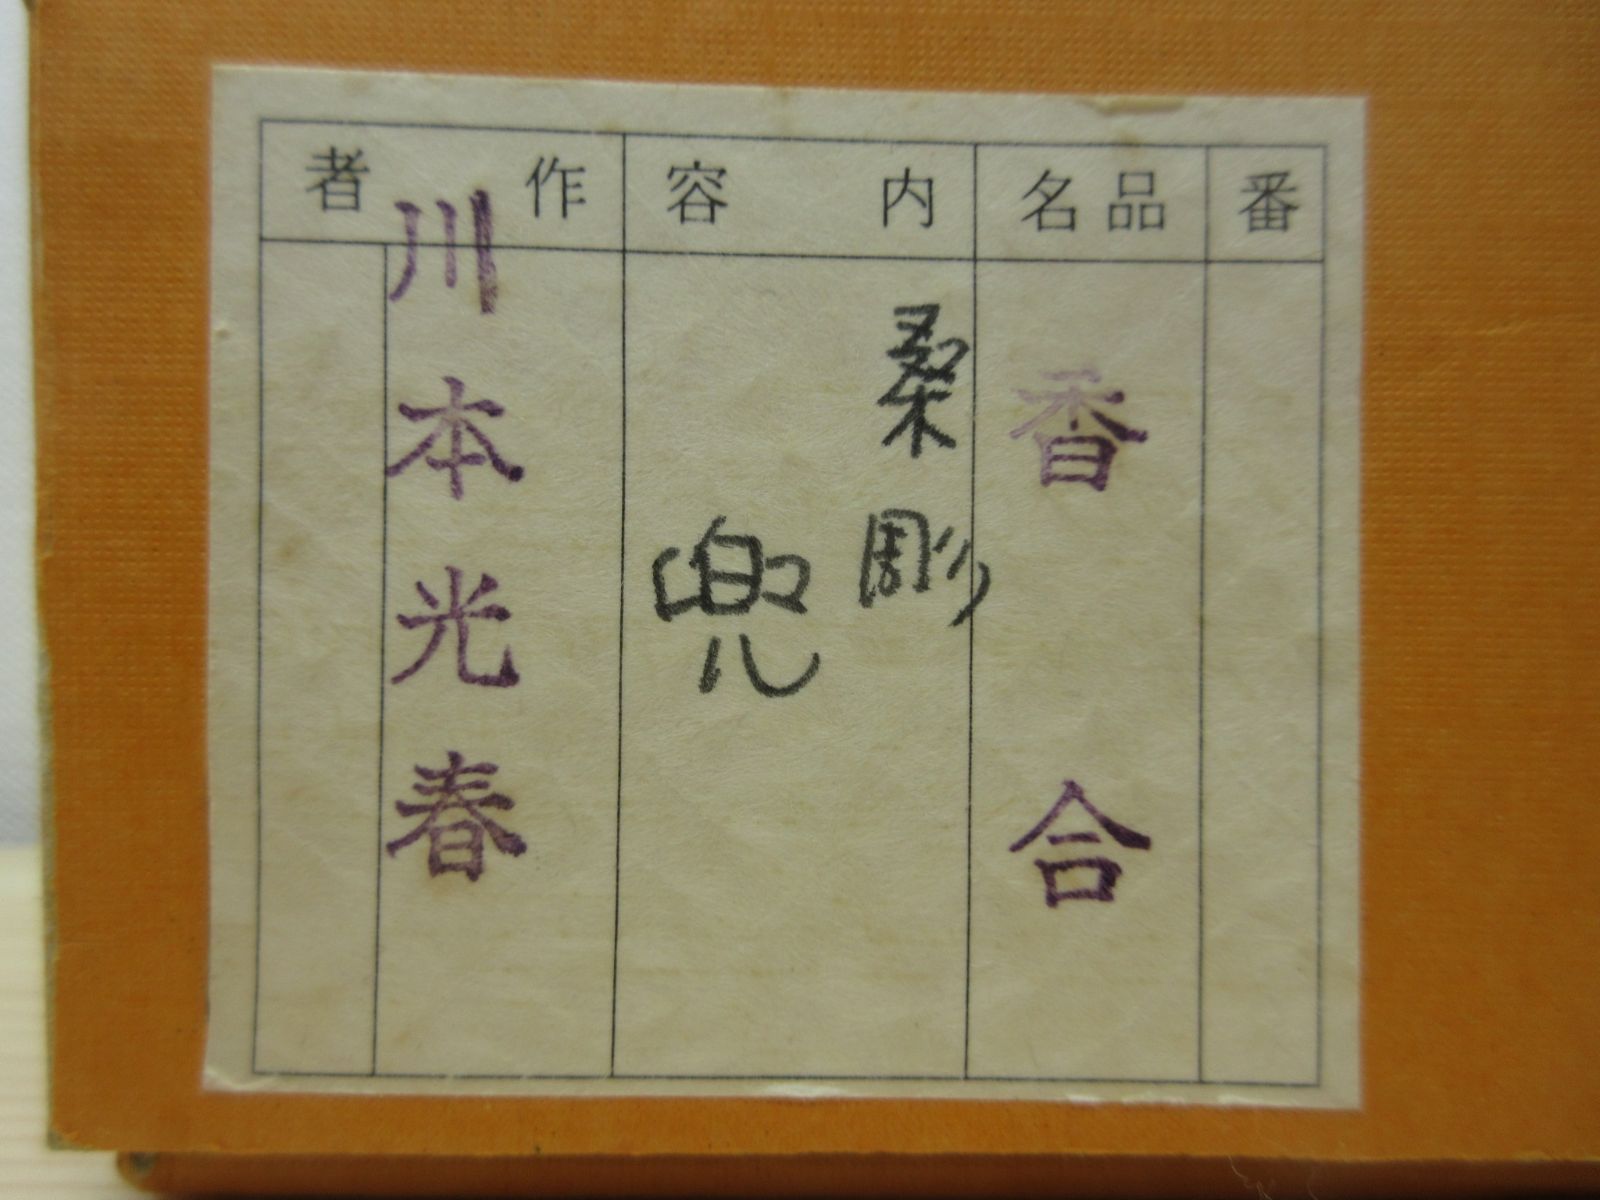 番
品名
香合
内容
桑彫
兜
作者
川本光春